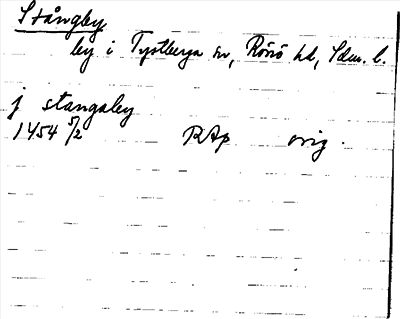 Stångby
by i Tystberga sn, Rönö hd, Sdm. l.
j stangxby
1454 5/2 RAp orig.